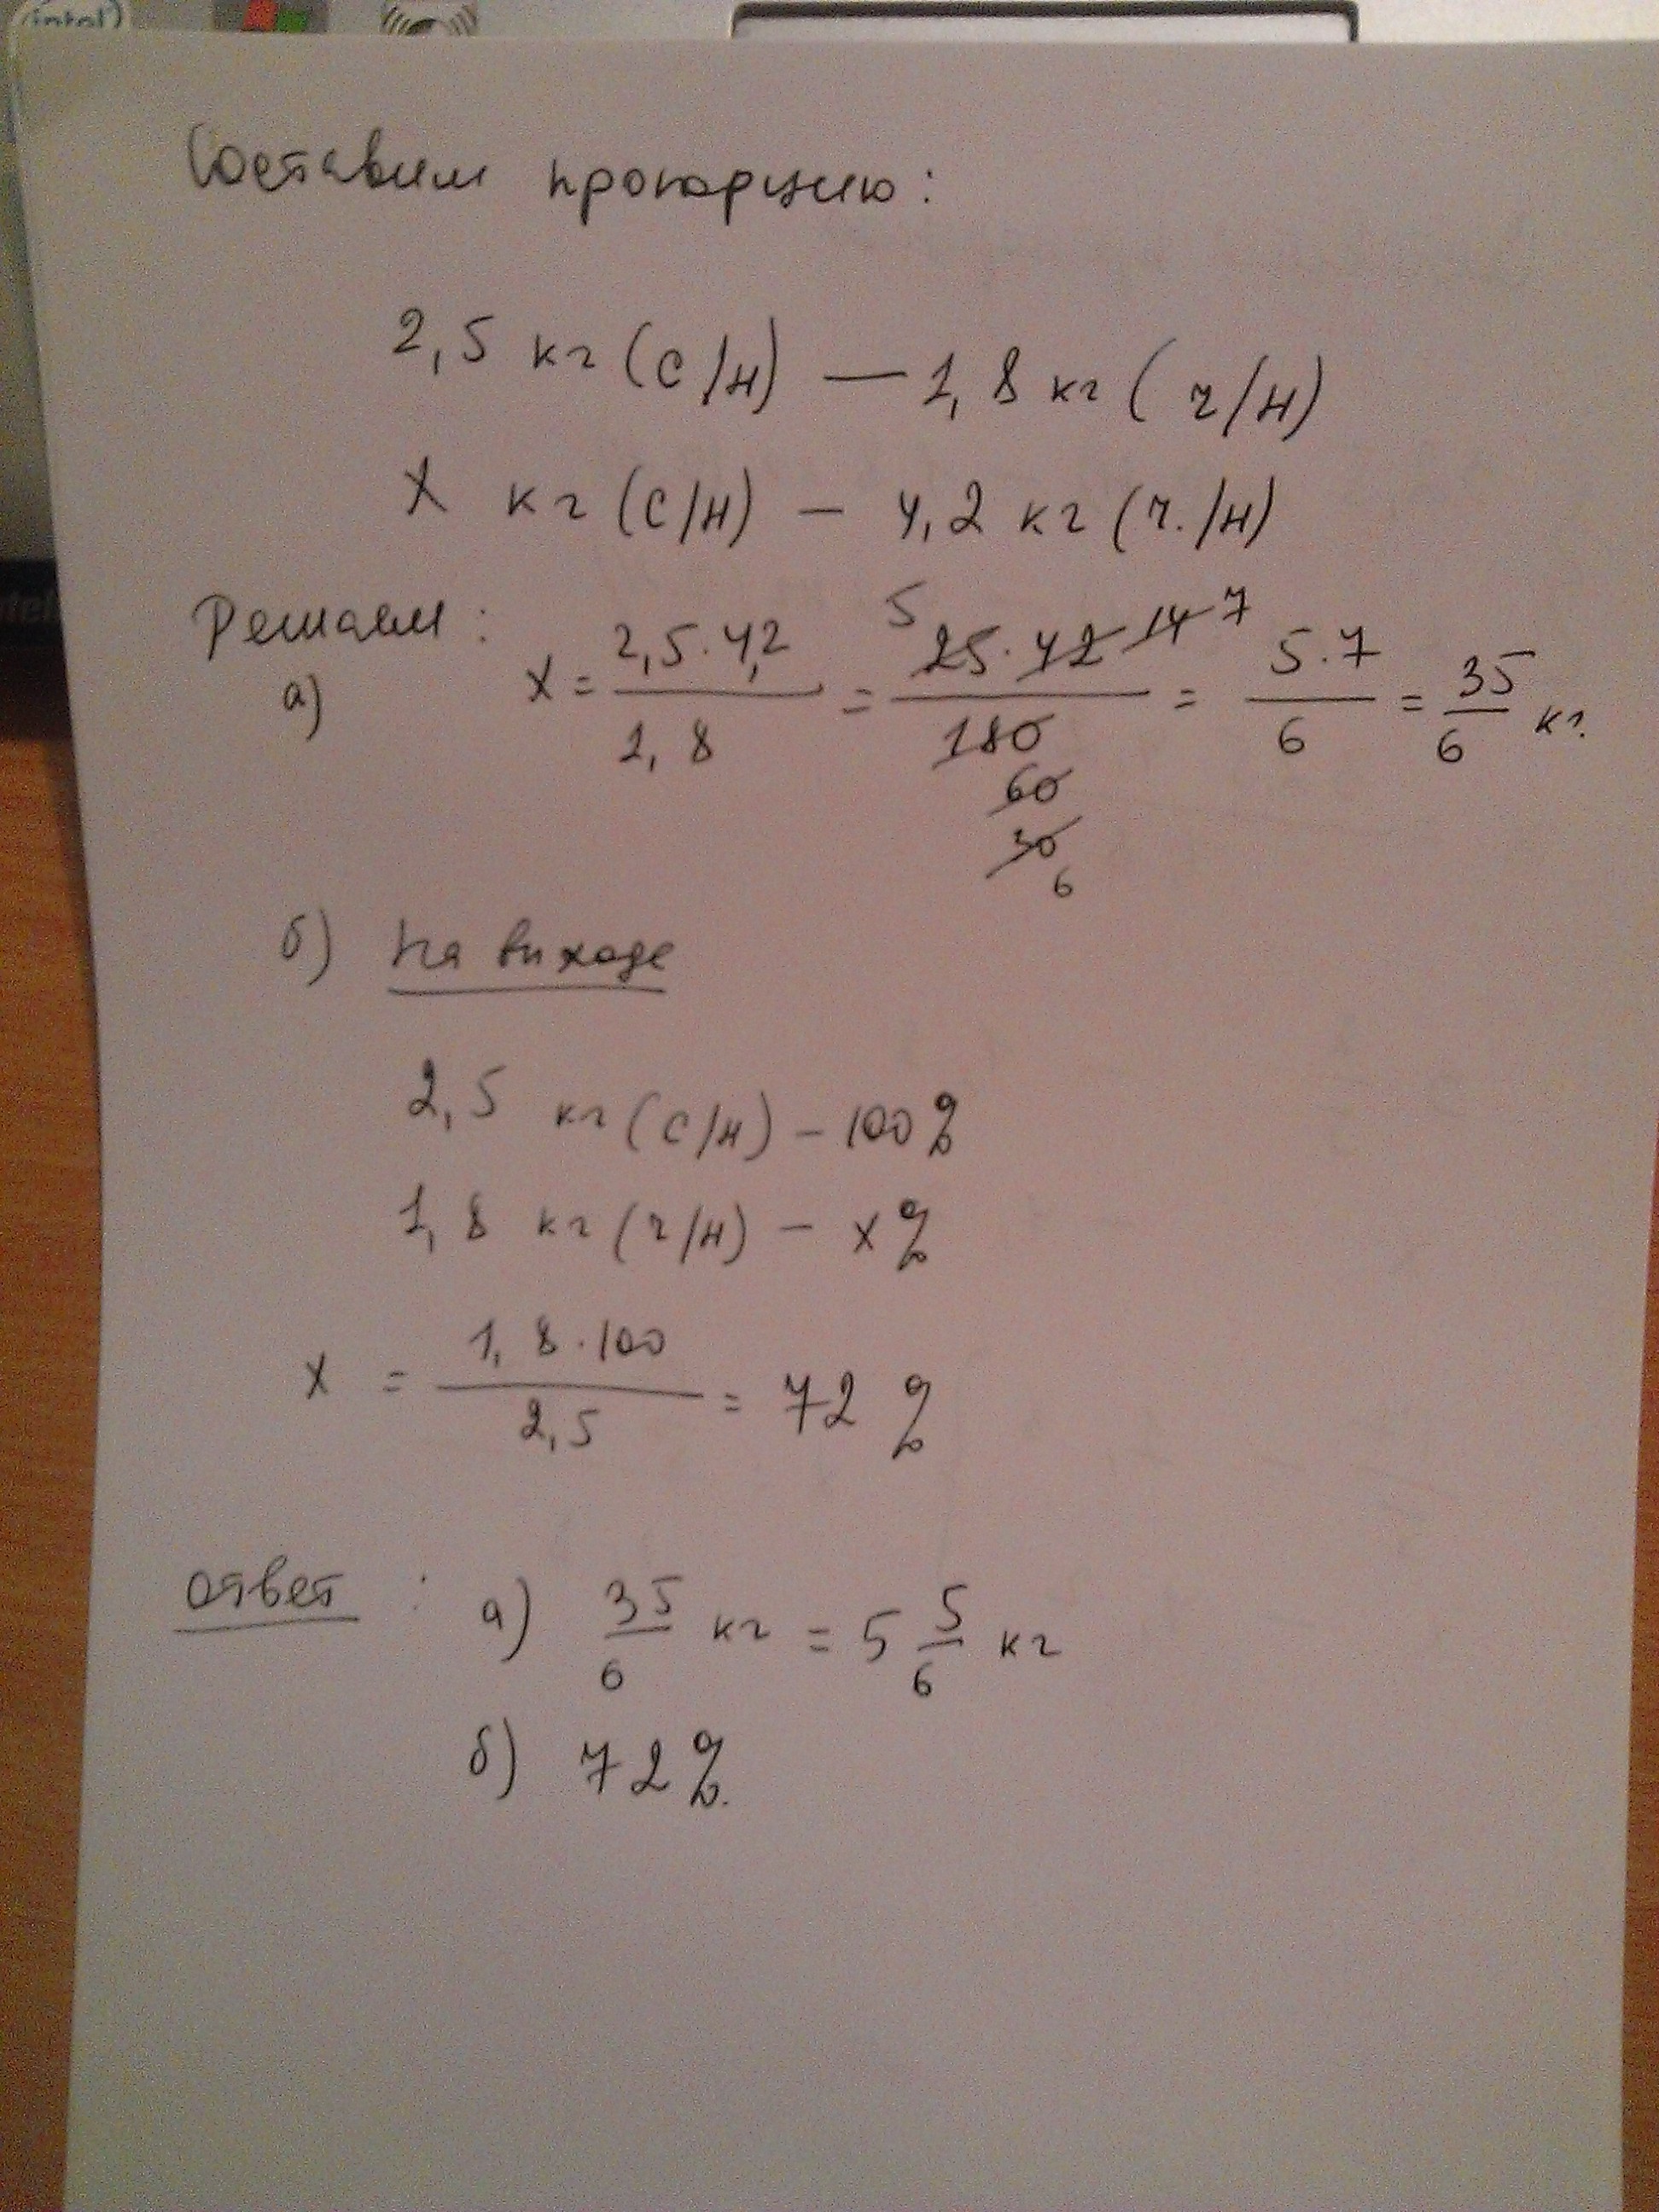 intel
Составим пропорцию:
2,5 кг (с/н) — 1,8 кг (ч/н)
x кг (с/н) — 4,2 кг (ч./н)
Решаем:
а) x = 2,5·4,2 / 1,8 = 5 25·42 14 7 / 180 60 30 6 = 5·7 / 6 = 35/6 кг.
б) на виходе
2,5 кг (с/н) – 100%
1,8 кг (ч/н) – x%
x = 1,8·100 / 2,5 = 72 %
ответ: а) 35/6 кг = 5 5/6 кг
б) 72%.